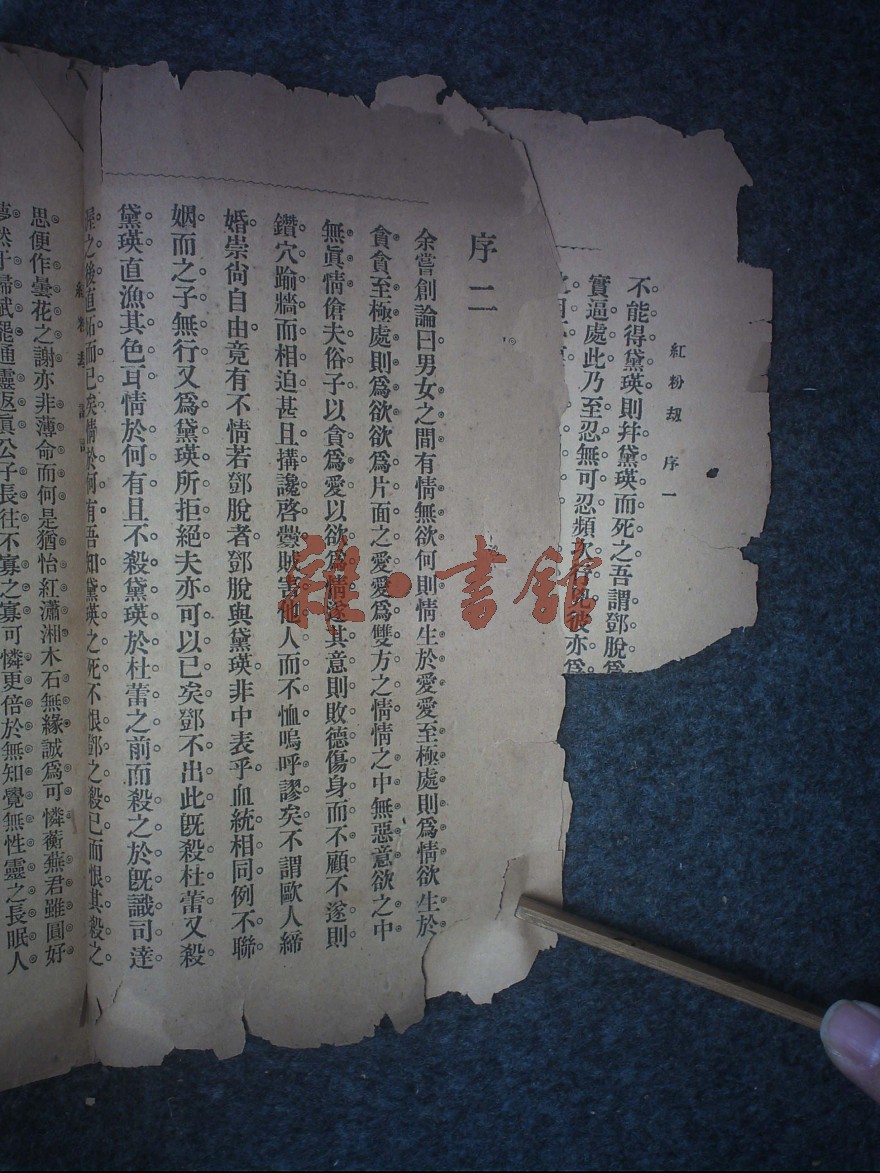 紅粉刼 序一
不能得黛瑛則幷黛瑛而死之吾謂鄧脫爲
實逼處此乃至忍無可忍頻次行兇彼亦爲
序二
余嘗創論曰男女之間有情無欲何則情生於愛愛至極處則爲情欲生於
貪貪至極處則爲欲欲爲片面之愛愛爲雙方之情情之中無惡意欲之中
無眞情傖夫俗子以貪爲愛以欲爲情遂其意則敗德傷身而不顧不遂則
鑽穴踰牆而相迫甚且搆讒啓釁賊害他人而不恤嗚呼謬矣不謂歐人締
婚崇尙自由竟有不情若鄧脫者鄧脫與黛瑛非中表乎血統相同例不聯
姻而之子無行又爲黛瑛所拒絕夫亦可以已矣鄧不出此旣殺杜蕾又殺
黛瑛直漁其色耳情於何有且不殺黛瑛於杜蕾之前而殺之於旣識司達
之後直妬而已矣情於何有吾知黛瑛之死不恨鄧之殺已而恨其殺之
思便作曇花之謝亦非薄命而何是猶怡紅瀟湘木石無緣誠爲可憐蘅蕪君雖圓好
夢然于歸賦罷通靈返眞公子長往不寡之寡可憐更倍於無知覺無性靈之長眠人
雜·書館